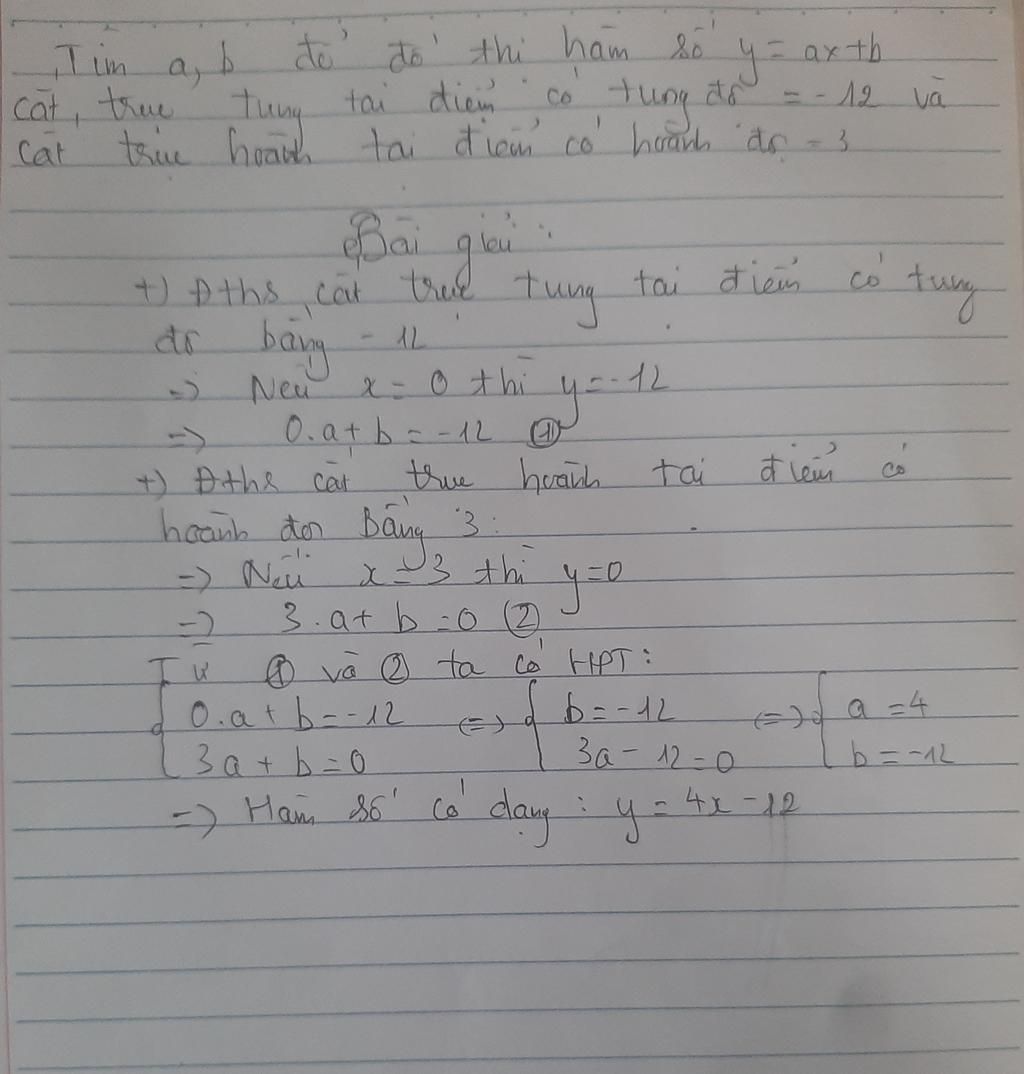 Tìm a, b để đồ thị hàm số y = ax+b
cắt trục tung tại điểm có tung độ = -12 và
cắt trục hoành tại điểm có hoành độ = 3
Bài giải :
+) Đths cắt trục tung tại điểm có tung
độ bằng - 12
=> Nếu x = 0 thì y = -12
=> 0.a + b = -12 ①
+) Đths cắt trục hoành tại điểm có
hoành độ Bằng 3 :
=> Nếu x = 3 thì y=0
=> 3.a + b = 0 ②
Từ ① và ② ta có HPT :
{ 0.a + b = -12 <=> { b = -12 <=> { a = 4
3a + b = 0 3a - 12 = 0 b = -12
=> Hàm số có dạng : y = 4x - 12